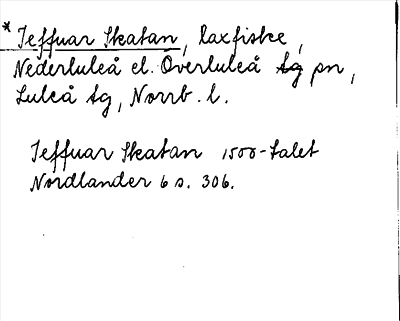 * Teffuar Skatan, laxfiske,
Nederluleå el. Överluleå sn,
Luleå tg, Norrb. l.
Teffuar Skatan 1500-talet
Nordlander 6 s. 306.